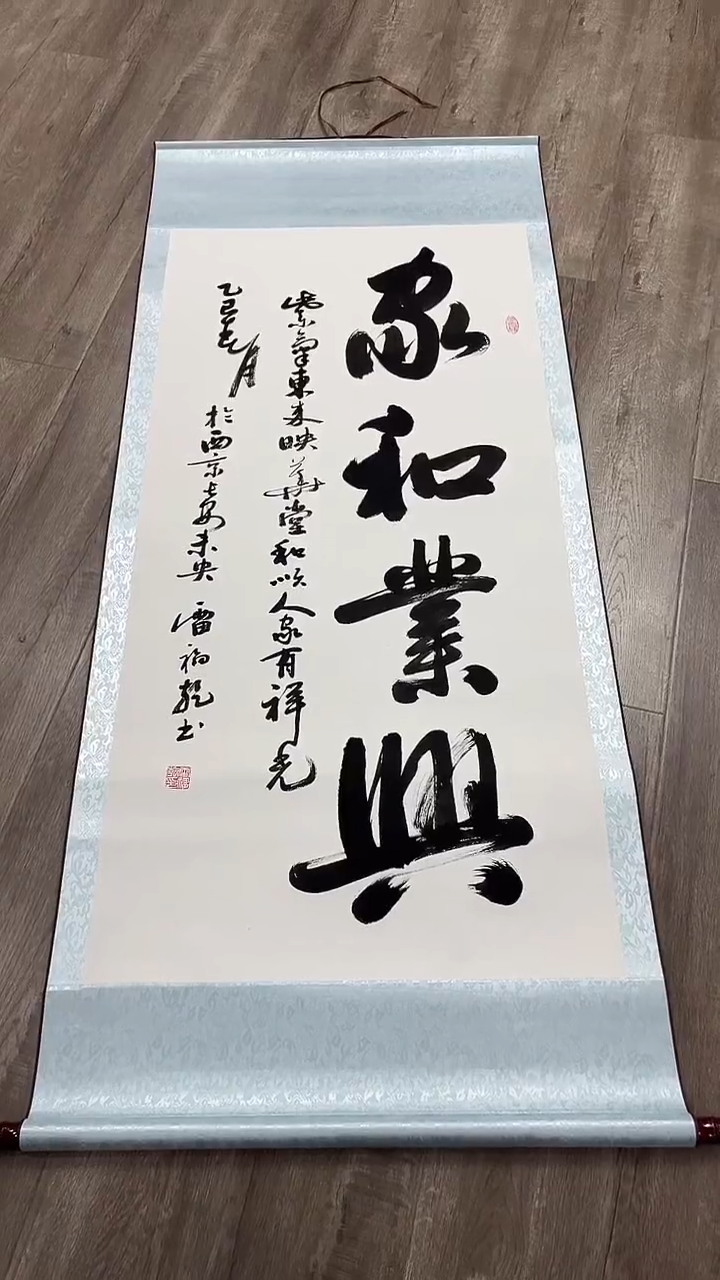 家和業興
紫氣東来映華堂和以人家有祥光
乙巳春月
於西京長安未央 雷福聪书